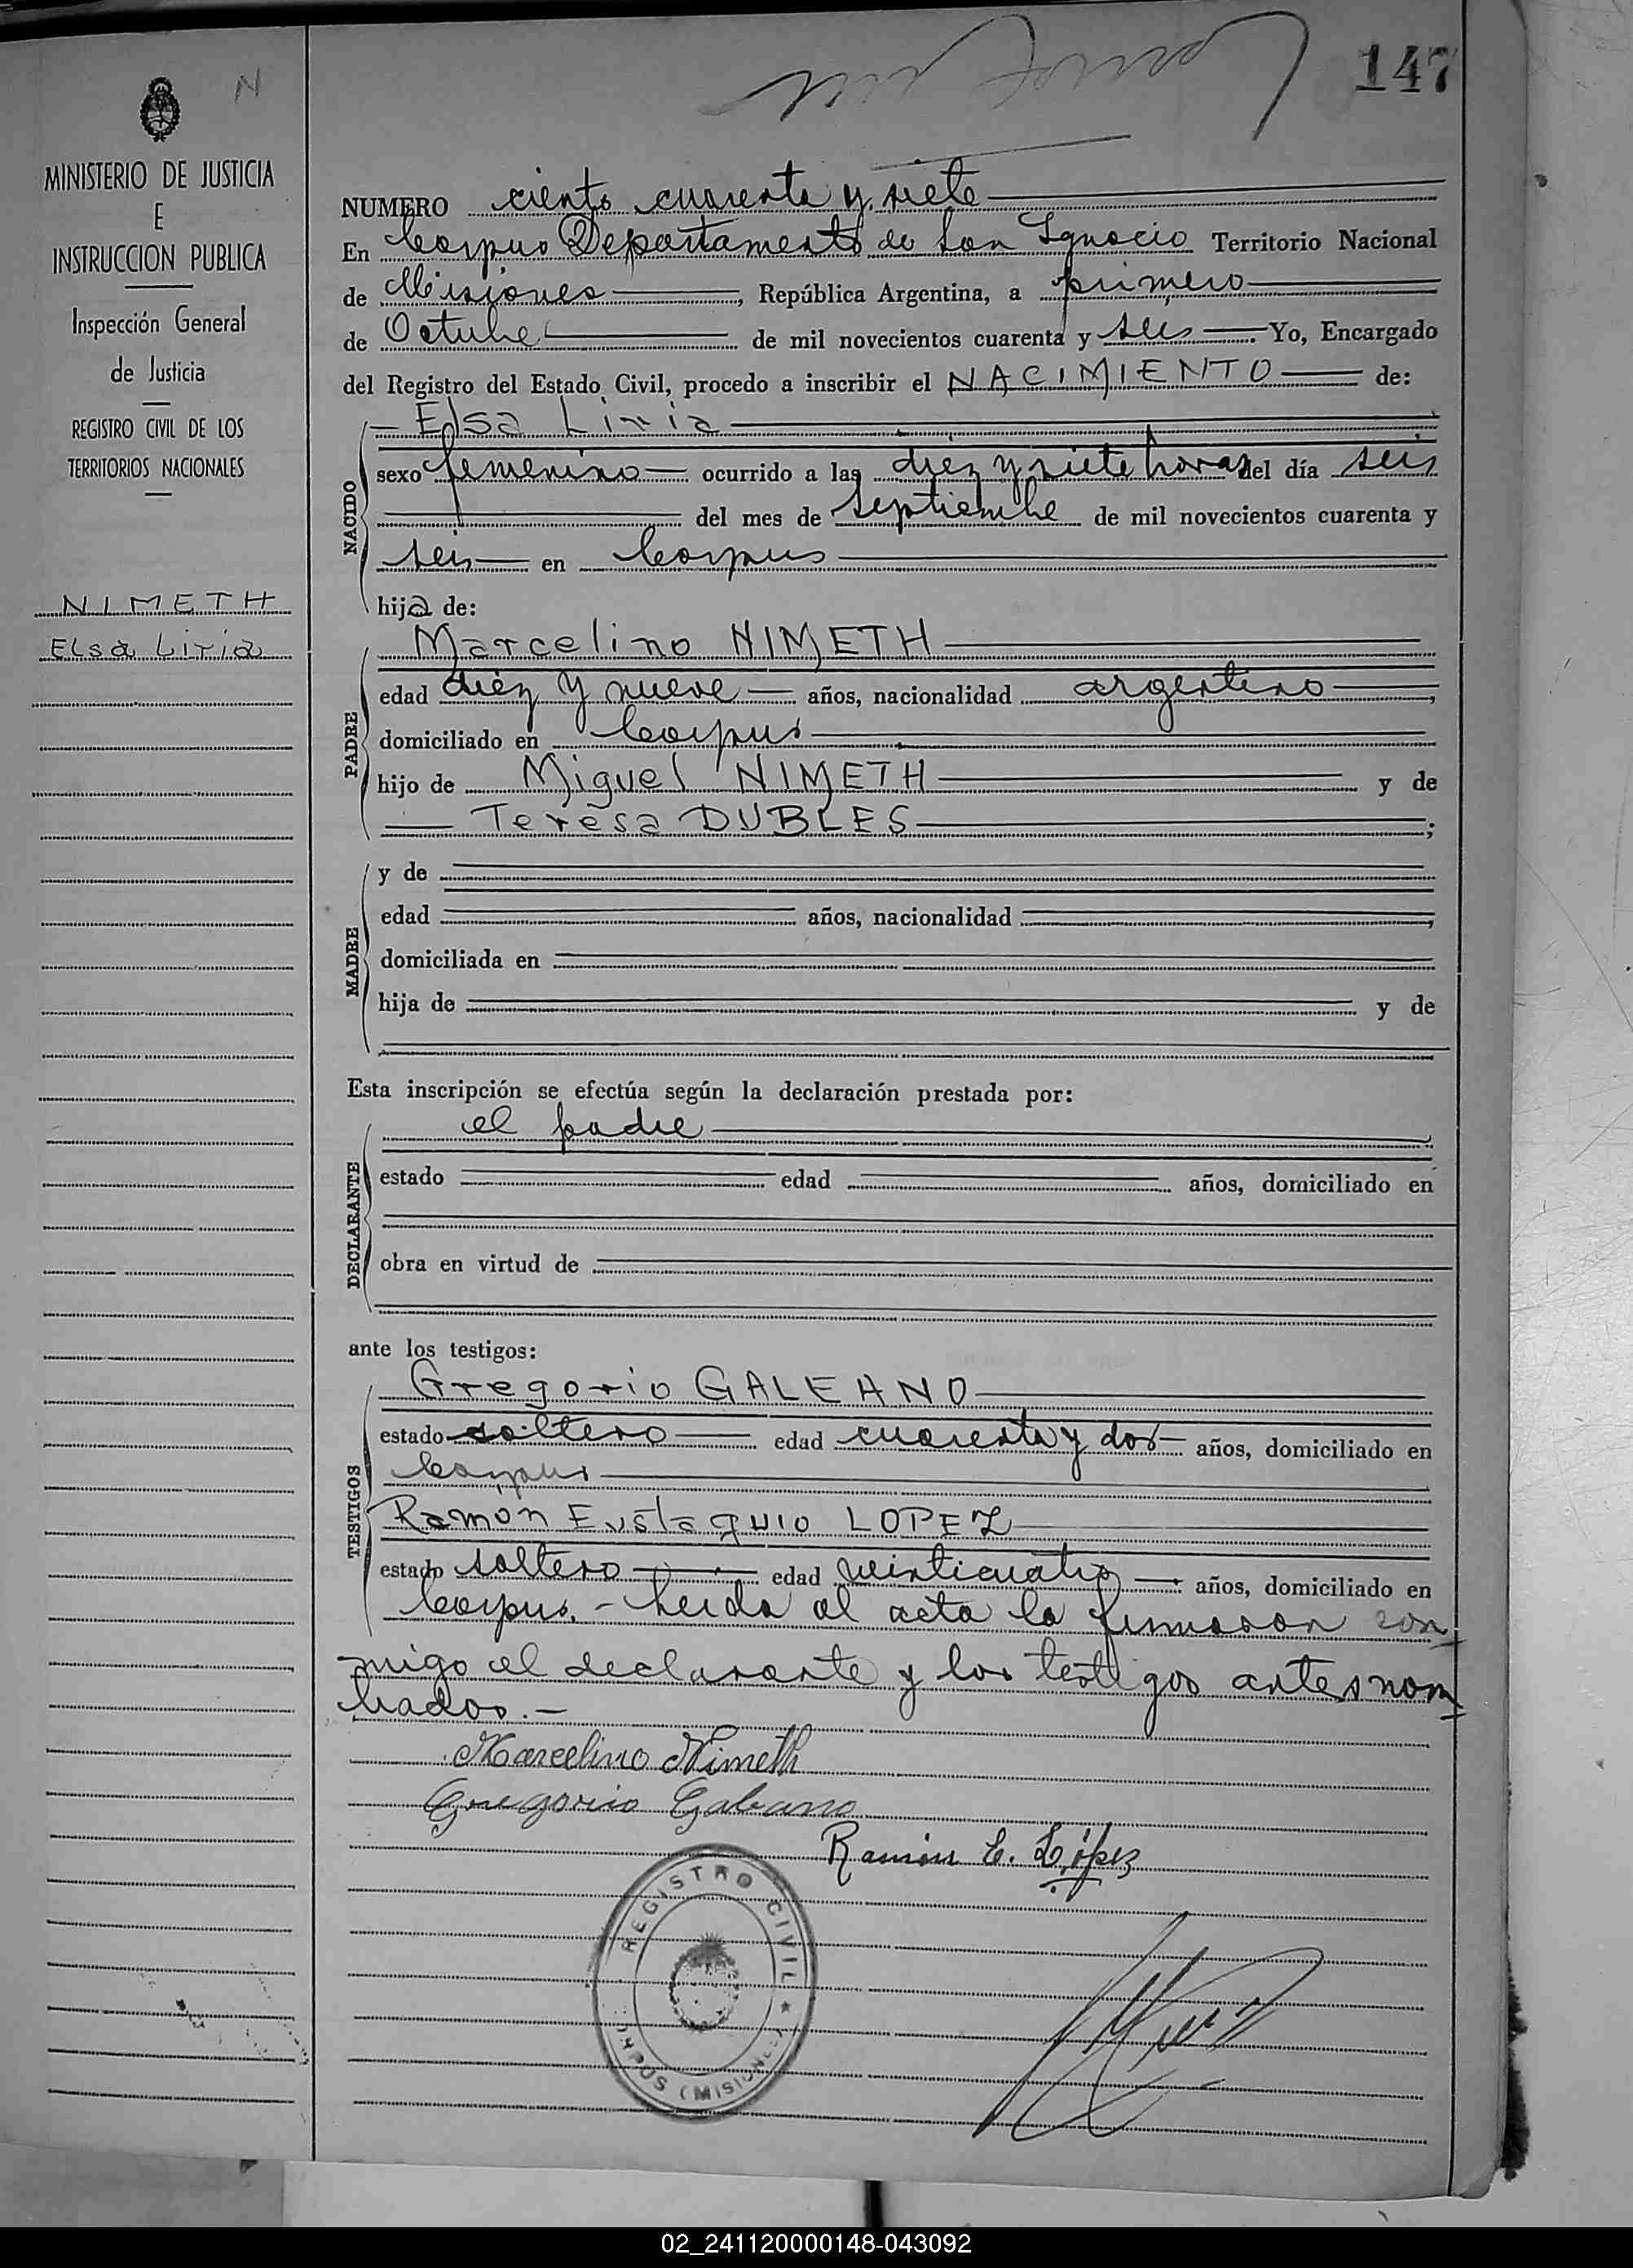 147
N
MINISTERIO DE JUSTICIA
E
INSTRUCCION PUBLICA
Inspección General
de Justicia
REGISTRO CIVIL DE LOS
TERRITORIOS NACIONALES
NIMETH
Elsa Liria
NUMERO ciento cuarenta y siete
En Corpus Departamento de San Ignacio Territorio Nacional
de Misiones, República Argentina, a primero
de Octubre de mil novecientos cuarenta y seis. Yo, Encargado
del Registro del Estado Civil, procedo a inscribir el NACIMIENTO de:
NACIDO
Elsa Liria
sexo femenino ocurrido a las diez y siete horas del día seis
del mes de septiembre de mil novecientos cuarenta y
seis en Corpus
hija de:
PADRE
Marcelino NIMETH
edad diez y nueve años, nacionalidad argentino,
domiciliado en Corpus
hijo de Miguel NIMETH y de
Teresa DUBLES;
MADRE
y de
edad años, nacionalidad,
domiciliada en
hija de y de
Esta inscripción se efectúa según la declaración prestada por:
DECLARANTE
el padre
estado edad años, domiciliado en
obra en virtud de
ante los testigos:
TESTIGOS
Gregorio GALEANO
estado soltero edad cuarenta y dos años, domiciliado en
Corpus
Ramón Eustaquio LOPEZ
estado soltero edad veinticuatro años, domiciliado en
Corpus.- Leida el acta la firmaron con-
migo el declarante y los testigos antes nom-
brados.-
Marcelino Nimeth
Gregorio Galeano
Ramón E. López
REGISTRO CIVIL ★
CORPUS (MISIONES)
02_241120000148-043092